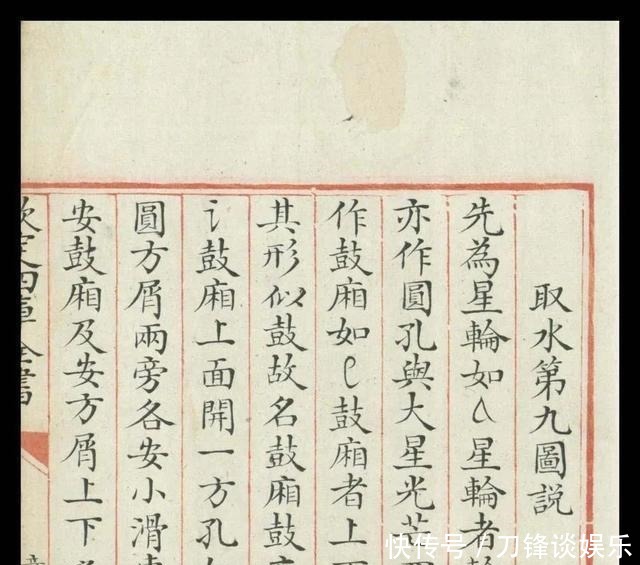 取水第九圖説
先為星輪如
星輪者
亦作圓孔與大星光芒
作鼓廂如
鼓廂者上
其形似鼓故名鼓廂鼓
鼓廂上面開一方孔
圓方屑兩旁各安小滑車
安鼓廂及安方屑上下
欽定四庫全書
快传号/刀锋谈娱乐